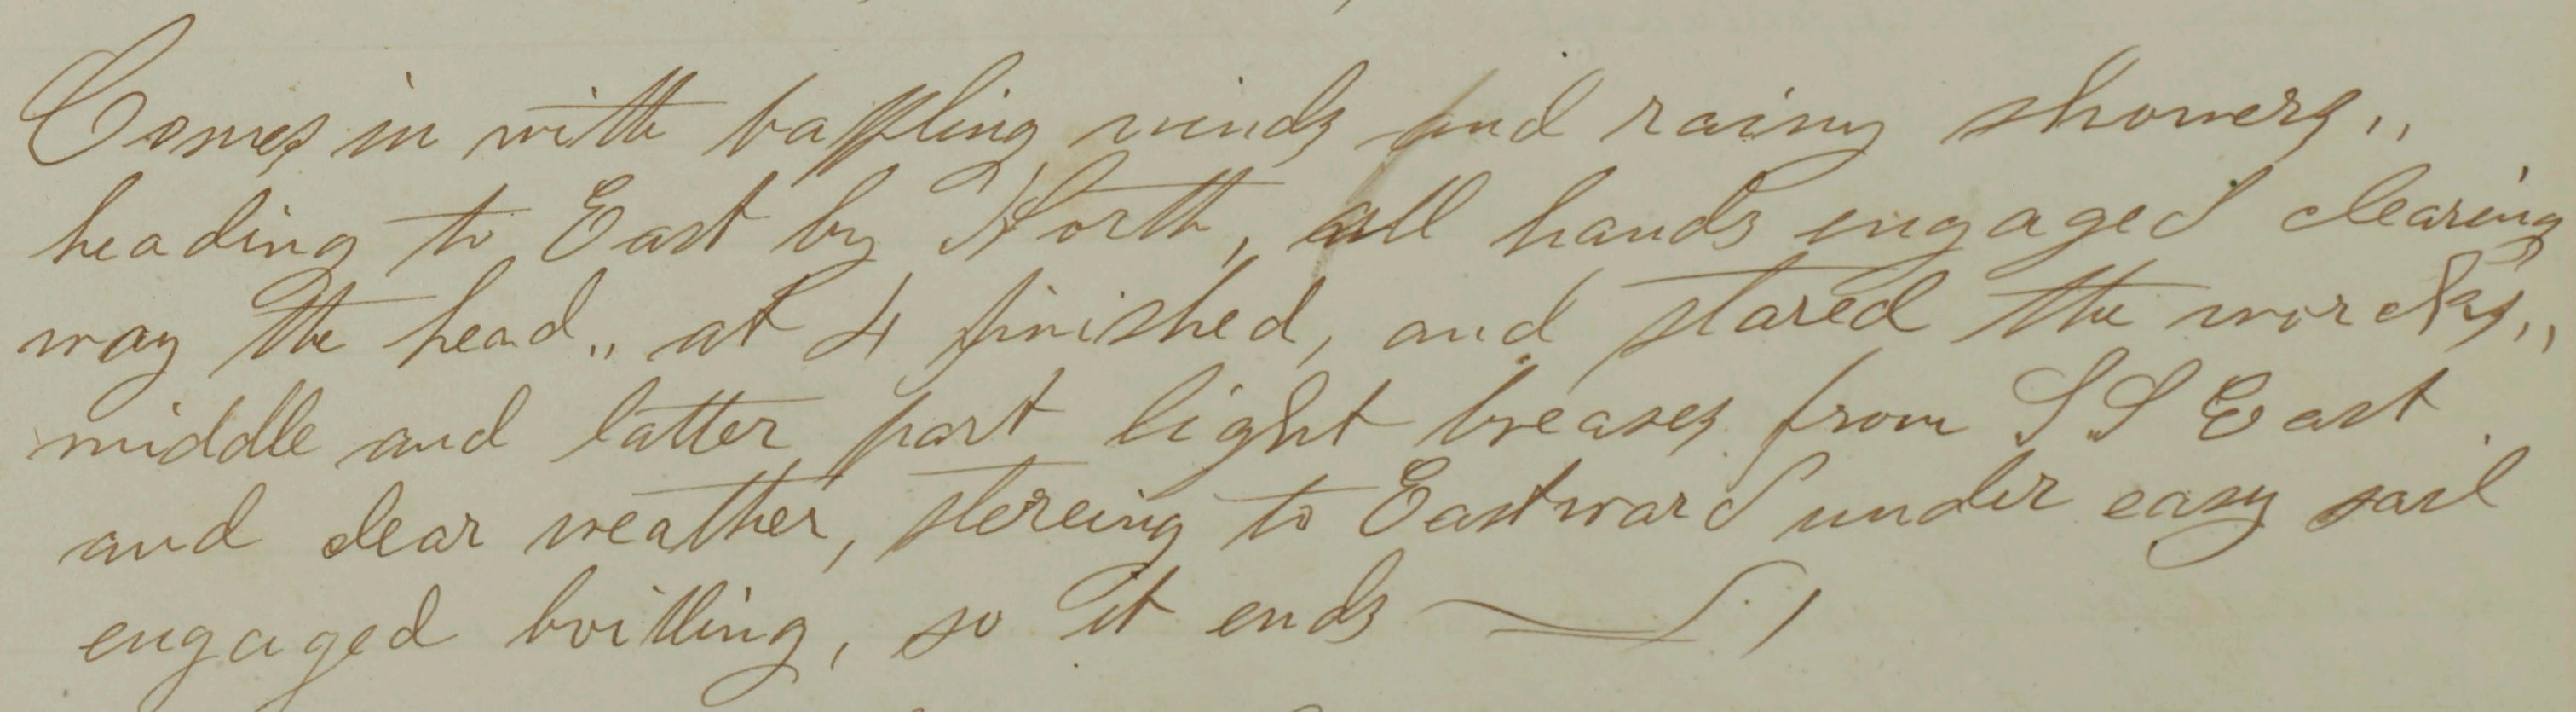 Comes in with baffling winds and rainy showers,,
heading to East by North, all hands engaged clearing
way the head,, at 4 finished, and stared the worcks,,
middle and latter part light breases from SS East
and clear weather, stereing to Eastward under easy sail
engaged boilling, so it ends